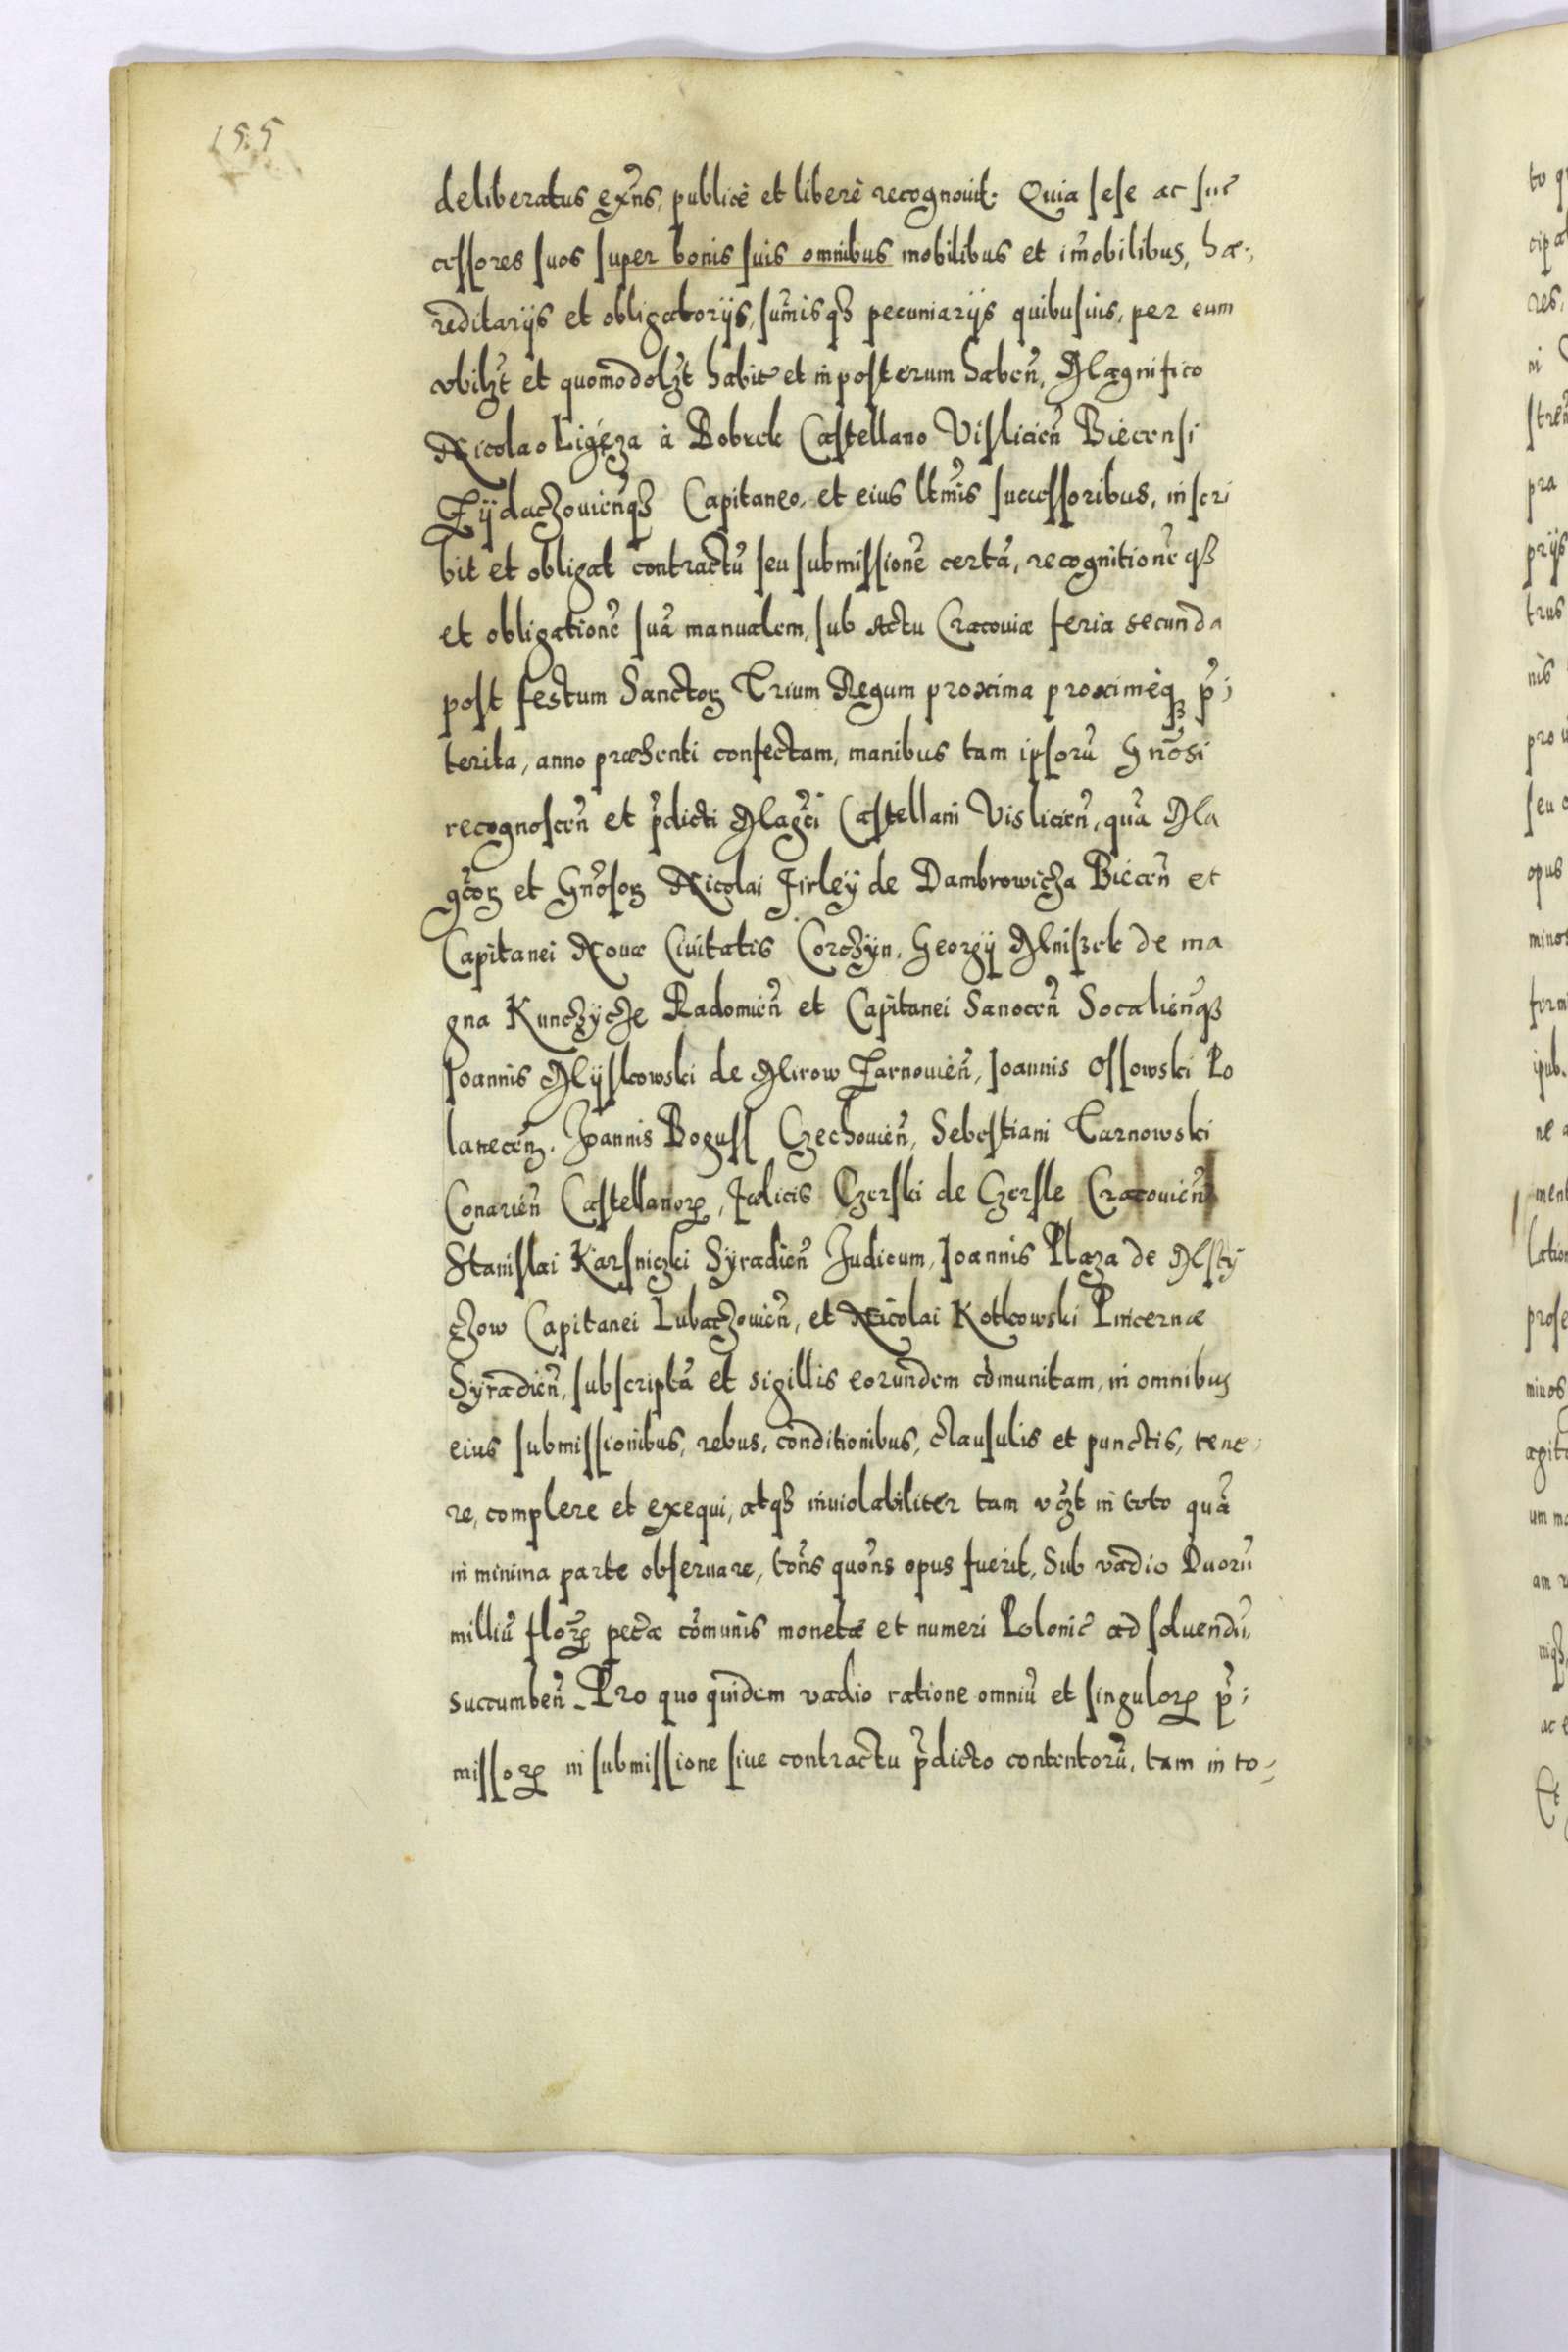 155
deliberatus exñs, publicè et liberè recognouit. Quia sese ac suc
cessores suos super bonis suis omnibus mobilibus et im̃obilibus, hæ-
reditarijs et obligatorijs, sum̃isqȝ pecuniarijs quibusuis, per eum
vbilȝt et quomodolȝt habit̃ et in posterum haben̄, Magnifico
Nicolao Ligęza à Bobrek Castellano Vislicien̄ Biecensi
Zÿdaczouien̄qȝ Capitaneo, et eius ltm̃is successoribus, inscri
bit et obligat contractū seu submissionē certā, recognitionēqȝ
et obligationē suā manualem, sub Actu Cracouiæ feria secunda
post festum Sanctoꝝ Trium Regum proxima proximèqȝ p̃-
terita, anno præsenti confectam, manibus tam ipsorū Gnõsi
recognoscen̄ et p̃dicti Magc̃i Castellani Vislicien̄, quā Ma
gc̃oꝝ et Gnõsoꝝ Nicolai Firleÿ de Dambrowicza Biecen̄ et
Capitanei Nouæ Ciuitatis Corczÿn, Georgÿ Mniszek de ma
gna Kunczÿcze Radomien̄ et Capitanei Sanocen̄ Socalien̄qȝ
Joannis Mÿskowski de Mirow Zarnouien̄, Joannis Ossowski Po
lanecen̄, Joannis Boguss Czechouien̄, Sebestiani Tarnowski
Conarien̄ Castellanoꝝ, Fœlicis Czerski de Czersk Cracouien̄
Stanislai Karsniczki Sÿradien̄ Judicum, Joannis Płaza de Msty
czow Capitanei Lubaczouien̄, et Nicolai Kotkowski Pincernæ
Sÿradien̄, subscriptā et sigillis eorundem cõmunitam, in omnibus
eius submissionibus, rebus, conditionibus, clausulis et punctis, tene-
re, complere et exequi, atqȝ inuiolabiliter tam vc̃ȝt in toto quā
in minima parte obseruare, tõns quõns opus fuerit, Sub vadio Duorū
milliū floꝝ pecũæ cõmunis monetæ et numeri Polonic̃ ad soluendū,
succumben̄. Pro quo quidem vadio ratione omniū et singuloꝝ p̃-
missoꝝ in submissione siue contractu p̃dicto contentorū, tam in to-